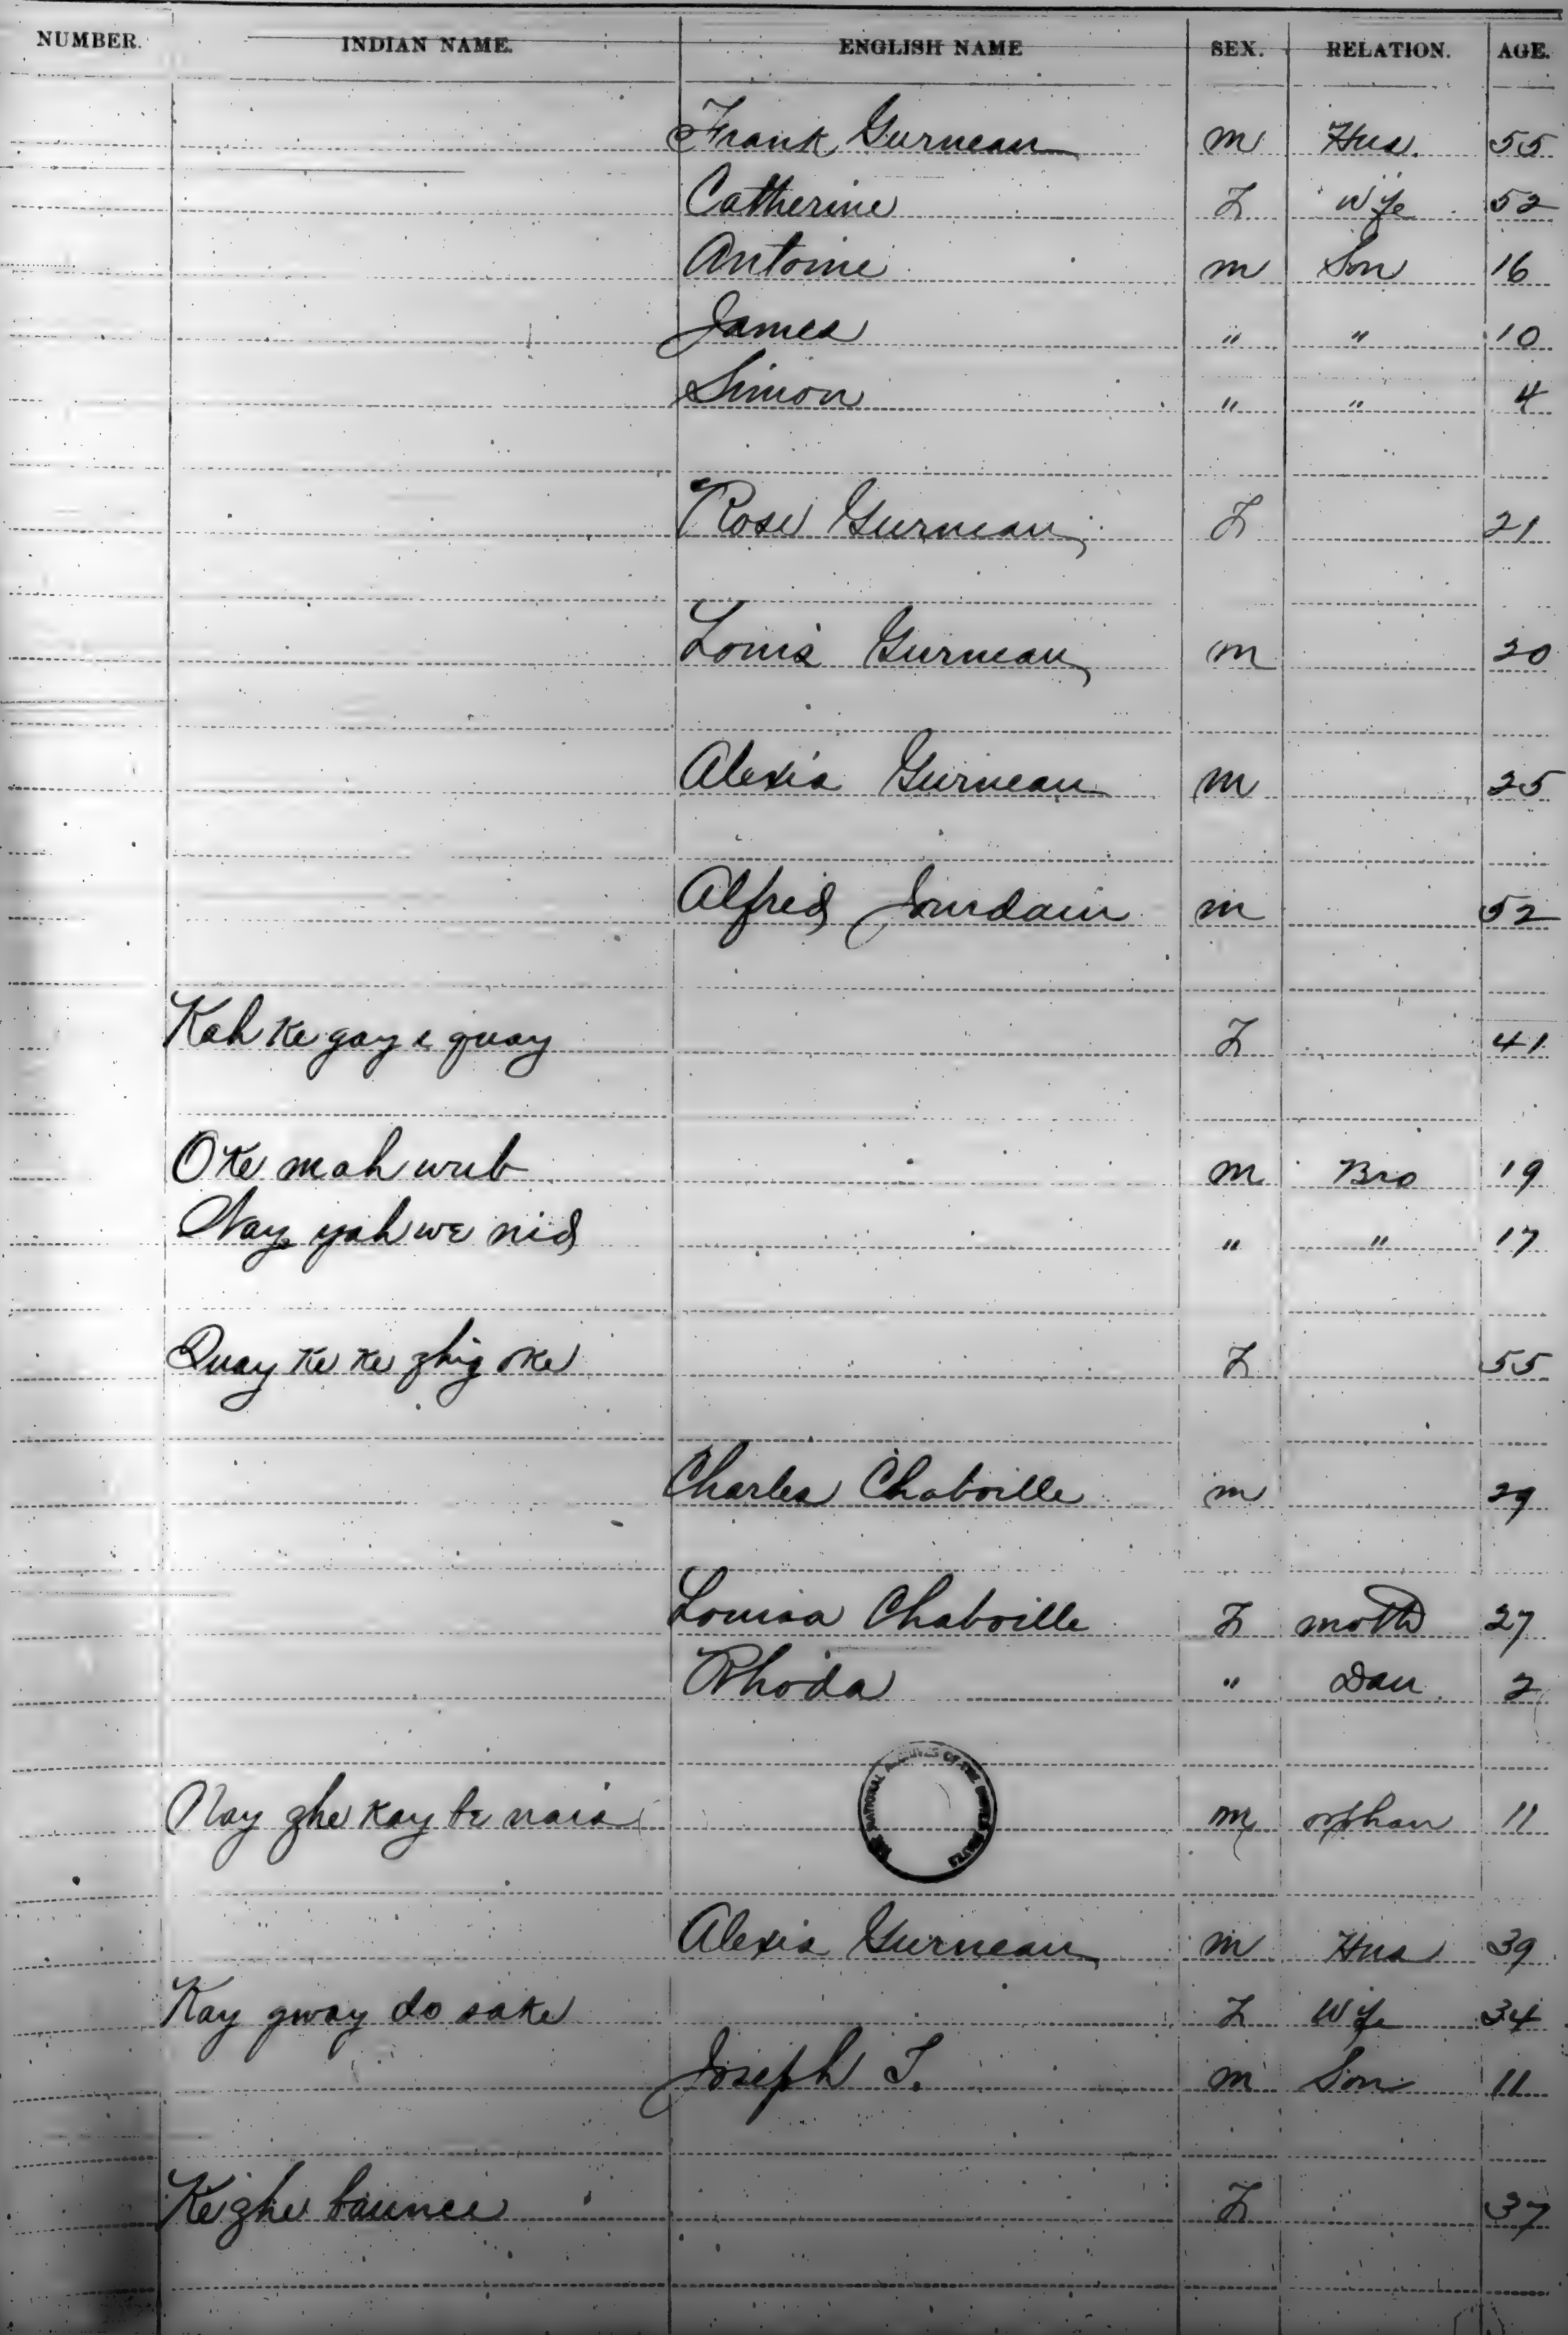 NUMBER. INDIAN NAME. ENGLISH NAME SEX. RELATION. AGE.
Frank Gurneau m Hus. 55
Catherine F Wife 52
Antoine m Son 16
James " " 10
Simon " " 4
Rose Gurneau F 21
Louis Gurneau m 20
Alexis Gurneau m 25
Alfred Jourdain m 52
Kah ke gay e quay F 41
O ke mah wub m Bro 19
Nay yah we nid " " 17
Quay ke ke zhig oke F 55
Charles Chaboille m 29
Louisa Chaboille F moth 27
Rhoda " Dau 2
THE NATIONAL ARCHIVES OF THE UNITED STATES
Nay zhe kay be nais m orphan 11
Alexis Gurneau m Hus 39
Kay gway do sake F Wife 34
Joseph T. m Son 11
Ke zhe baunce F 37